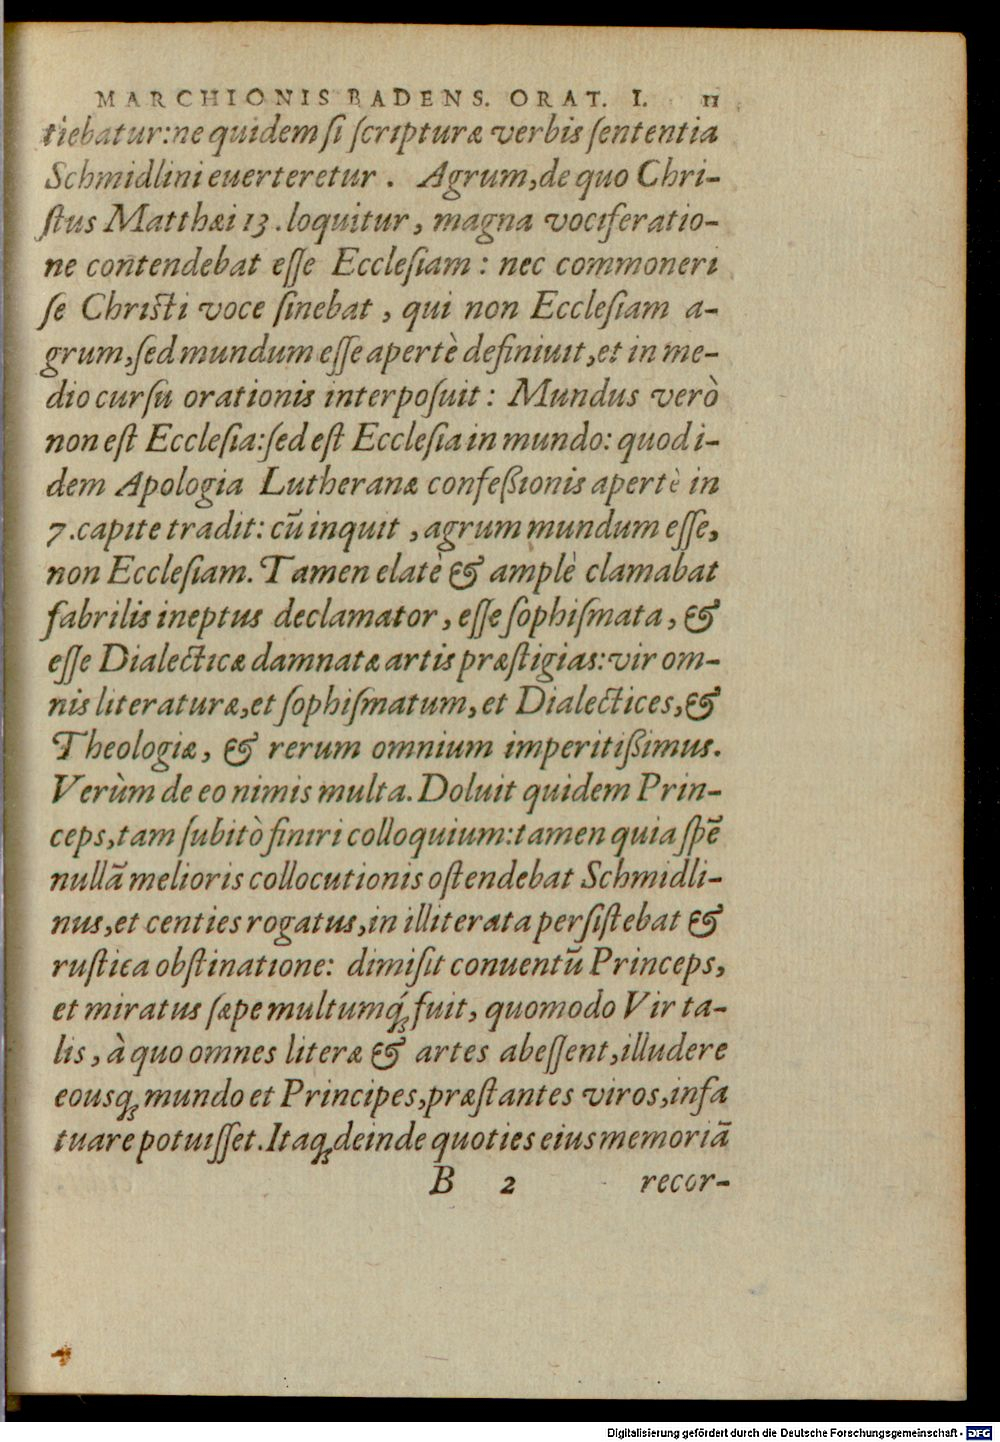 MARCHIONIS BADENS. ORAT. I. 11
tiebatur: ne quidem ſi ſcripturæ verbis ſententia
Schmidlini euerteretur. Agrum, de quo Chri-
ſtus Matthæi 13. loquitur, magna vociferatio-
ne contendebat eſſe Eccleſiam: nec commoneri
ſe Chriſti voce ſinebat, qui non Eccleſiam a-
grum, ſed mundum eſſe apertè definiuit, et in me-
dio curſu orationis interpoſuit: Mundus verò
non eſt Eccleſia: ſed eſt Eccleſia in mundo: quod i-
dem Apologia Lutheranæ confeßionis apertè in
7. capite tradit: cū inquit, agrum mundum eſſe,
non Eccleſiam. Tamen elatè & amplè clamabat
fabrilis ineptus declamator, eſſe ſophiſmata, &
eſſe Dialecticæ damnatæ artis præſtigias: vir om-
nis literaturæ, et ſophiſmatum, et Dialectices, &
Theologiæ, & rerum omnium imperitißimus.
Verùm de eo nimis multa. Doluit quidem Prin-
ceps, tam ſubitò finiri colloquium: tamen quia ſpē
nullā melioris collocutionis oſtendebat Schmidli-
nus, et centies rogatus, in illiterata perſiſtebat &
ruſtica obſtinatione: dimiſit conuentū Princeps,
et miratus ſæpe multumq́ꝫ fuit, quomodo Vir ta-
lis, à quo omnes literæ & artes abeſſent, illudere
eousqꝫ mundo et Principes, præſtantes viros, infa
tuare potuiſſet. Itaqꝫ deinde quoties eius memoriā
B 2 recor-
Digitalisierung gefördert durch die Deutsche Forschungsgemeinschaft - DFG